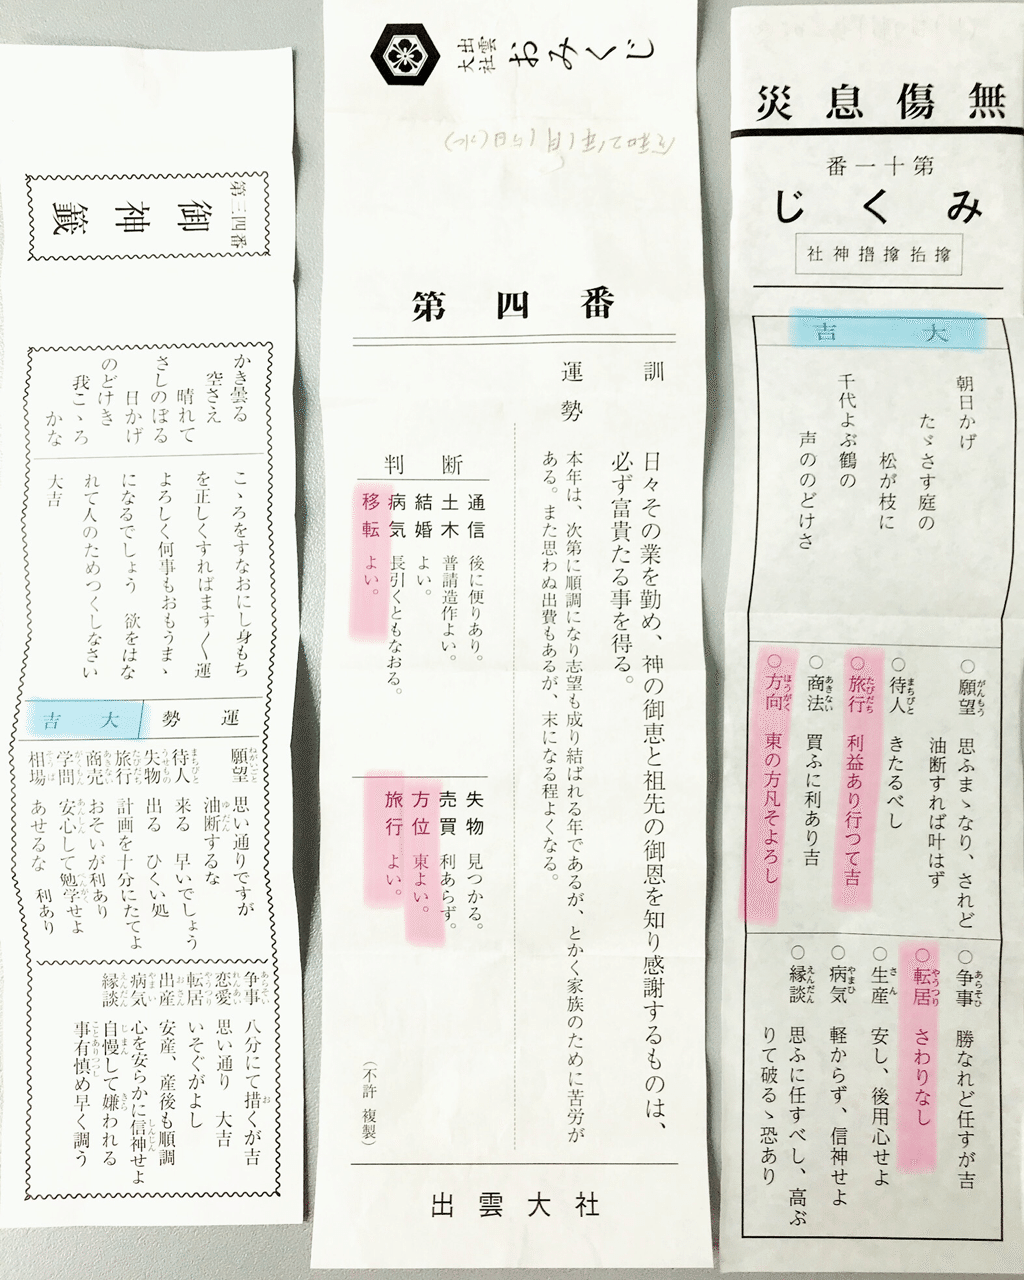 無傷息災
第十一番
みくじ
神社
大吉
朝日かげ
たゞさす庭の
松が枝に
千代よぶ鶴の
声ののどけさ
○願望 思ふまゝなり、されど
油断すれば叶はず
○待人 きたるべし
○旅行 利益あり行つて吉
○商法 買ふに利あり吉
○方向 東の方凡そよろし
○争事 勝なれど任すが吉
○転居 さわりなし
○生産 安し、後用心せよ
○病気 軽からず、信神せよ
○縁談 思ふに任すべし、高ぶ
りて破るゝ恐あり
出雲大社
おみくじ
第四番
訓
日々その業を勤め、神の御恵と祖先の御恩を知り感謝するものは、
必ず富貴たる事を得る。
運勢
本年は、次第に順調になり志望も成り結ばれる年であるが、とかく家族のために苦労が
ある。また思わぬ出費もあるが、末になる程よくなる。
判断
通信 後に便りあり。
土木 普請造作よい。
結婚 よい。
病気 長引くともなおる。
移転 よい。
失物 見つかる。
売買 利あらず。
方位 東よい。
旅行 よい。
(不許複製)
出雲大社
第三四番
御神籤
かき曇る
空さえ
晴れて
さしのぼる
日かげ
のどけき
我こゝろ
かな
こゝろをすなおにし身もち
を正しくすればます〱運
よろしく何事もおもうまゝ
になるでしょう 欲をはな
れて人のためつくしなさい
大吉
運勢 大吉
願望 思い通りですが
油断するな
待人 来る 早いでしょう
失物 出る ひくい処
旅行 計画を十分にたてよ
商売 おそいが利あり
学問 安心して勉学せよ
相場 あせるな 利あり
争事 八分にて措くが吉
恋愛 思い通り 大吉
転居 いそぐがよし
出産 安産、産後も順調
病気 心を安らかに信神せよ
縁談 自慢して嫌われる
事有慎め早く調う